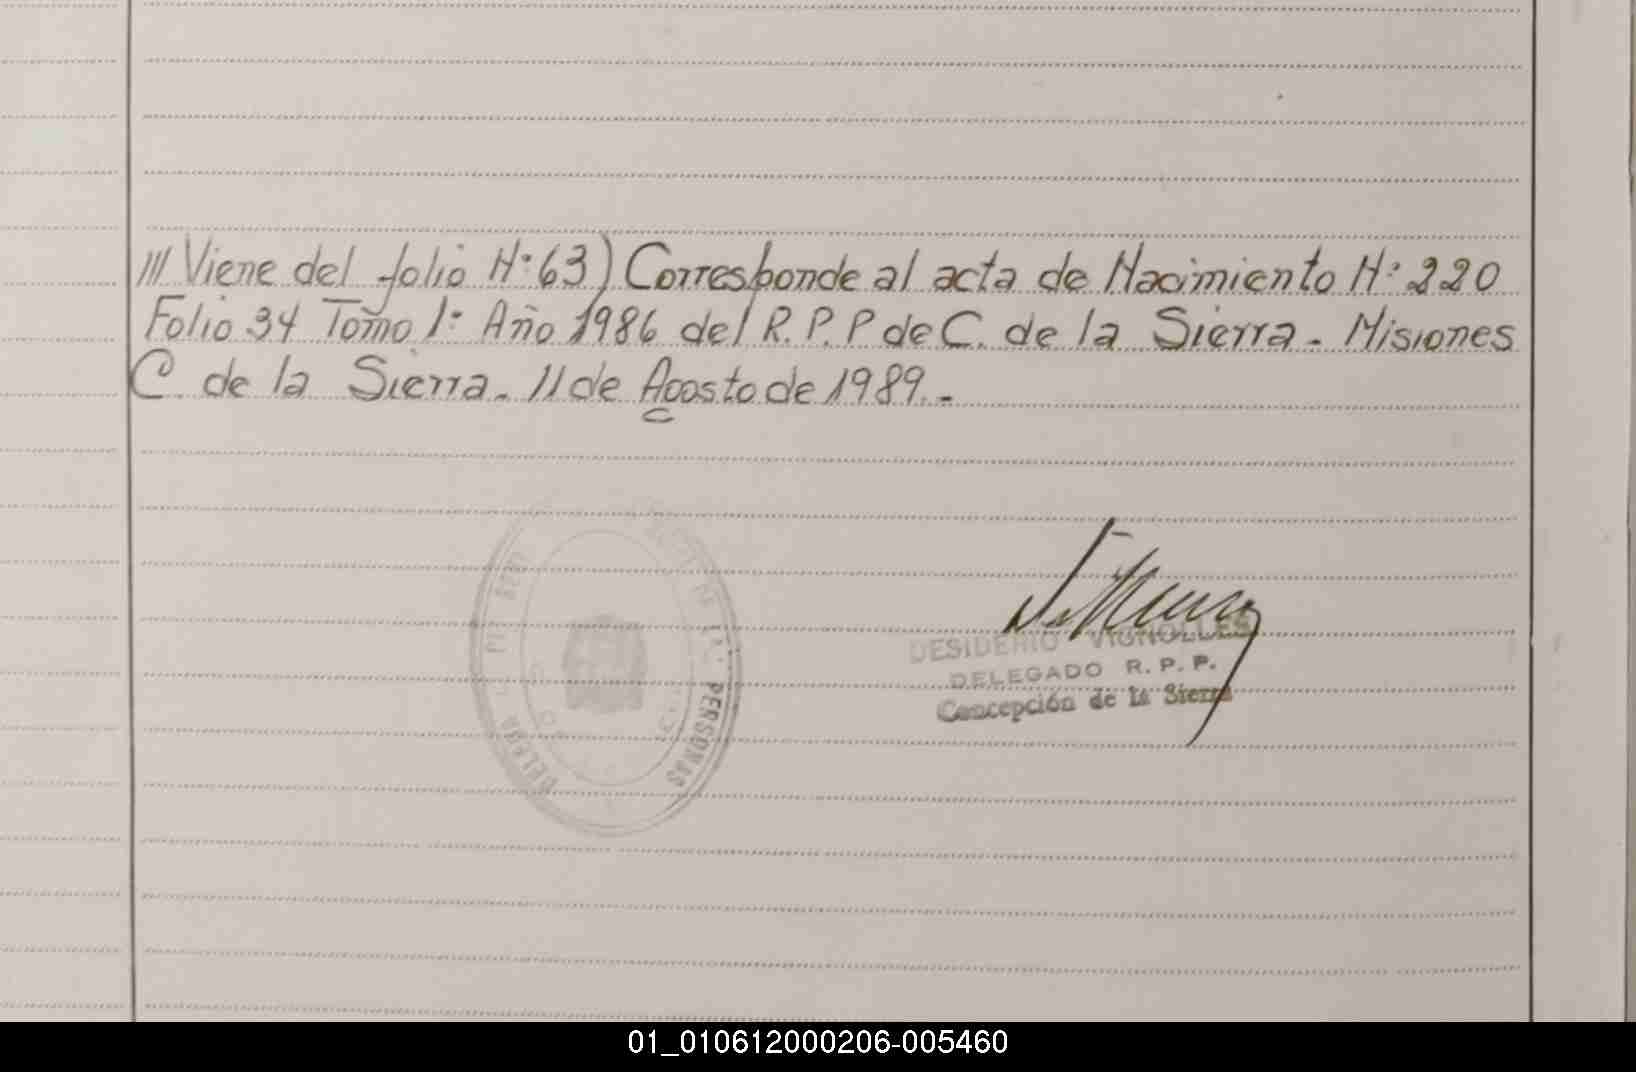 /// Viene del folio N: 63) Corresponde al acta de Nacimiento N: 220
Folio 34 Tomo 1: Año 1986 del R.P.P de C. de la Sierra - Misiones
C. de la Sierra - 11 de Agosto de 1989.-
DESIDERIO VIGNOLLES
DELEGADO R. P. P.
Concepción de la Sierra
PERSONAS
01_010612000206-005460